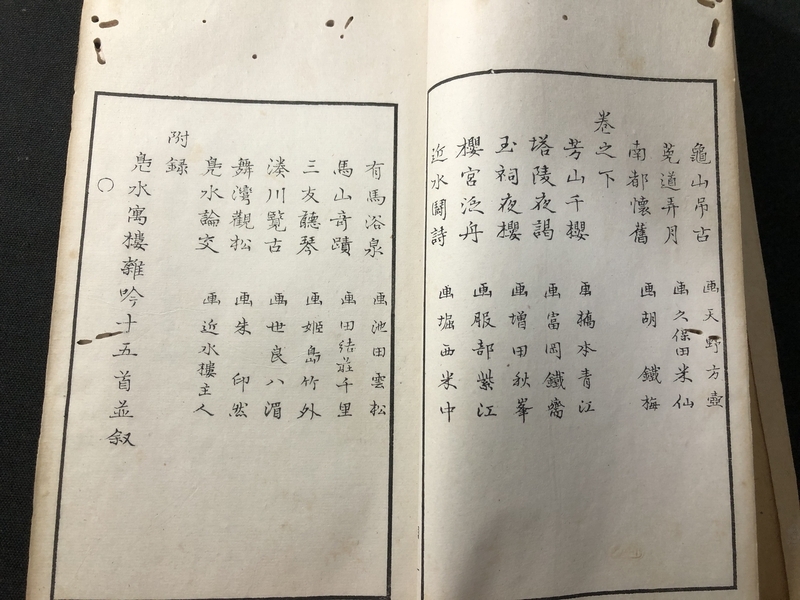 龜山吊古 画天野方壺
菟道弄月 画久保田米仙
南都懷舊 画胡鐵梅
卷之下
芳山千櫻 画橋本青江
塔陵夜謁 画富岡鐵齋
玉祠夜櫻 画增田秋峯
櫻宮泛舟 画服部紫江
近水鬪詩 画堀西米中
有馬浴泉 画池田雲松
馬山奇蹟 画田結莊千里
三友聽琴 画姬島竹外
湊川覽古 画世良八湄
舞灣觀松 画朱印然
鳧水論交 画近水樓主人
附錄
鳧水寓樓雜吟十五首並叙
○